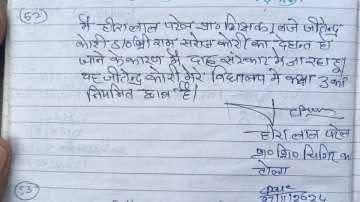 (52)
मैं हीरालाल पटेल प्रा० शिक्षक, बजे जीतेन्द्र
कोरी S/० श्री राम सरोज कोरी का देहान्त हो
जाने के कारण मैं दाह संस्कार में जा रहा हूँ
यह जीतेन्द्र कोरी मेरे विद्यालय में कक्षा 3 का
नियमित छात्र है।
हीरा लाल पटेल
प्रा० शि०
टोला
(53)